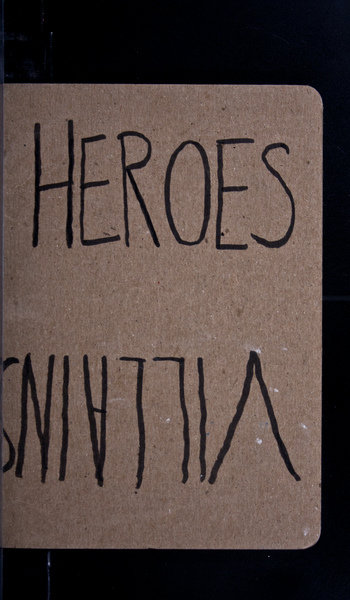 HEROES
VILLAINS